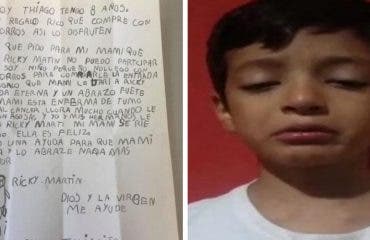 OY THIAGO TENGO 8 AÑOS.
O REGALO RICO QUE COMPRE CON
ORROS ASI LO DISFRUTEN
QUE PIDO PARA MI MAMI QUE
RICKY MATIN NO PUEDO PARTUPAR
SOY NIÑO PEQUEÑO NOLLEGO CON
ORROS PARA COMRARLE LA ENTRADA
GALO QUE MAMI LE DARI A RICK
DA ETERNA Y UN ABRAZO FUETE
MAMI ESTA ENFERMA DE TUMO
AL CANCER LLORA MUCHO CUANDO LE
Y YO Y MIS HERMANOS LE
O RICKY MARTI MI MAMI SE RIE
O ELLA ES FELIZ
O UNA AYUDA PARA QUE MAMI
A Y LO ABRAZE NADA MAS
OR
RICKY MARTIN
DIOS Y LA VIRGEN
ME AYUDE